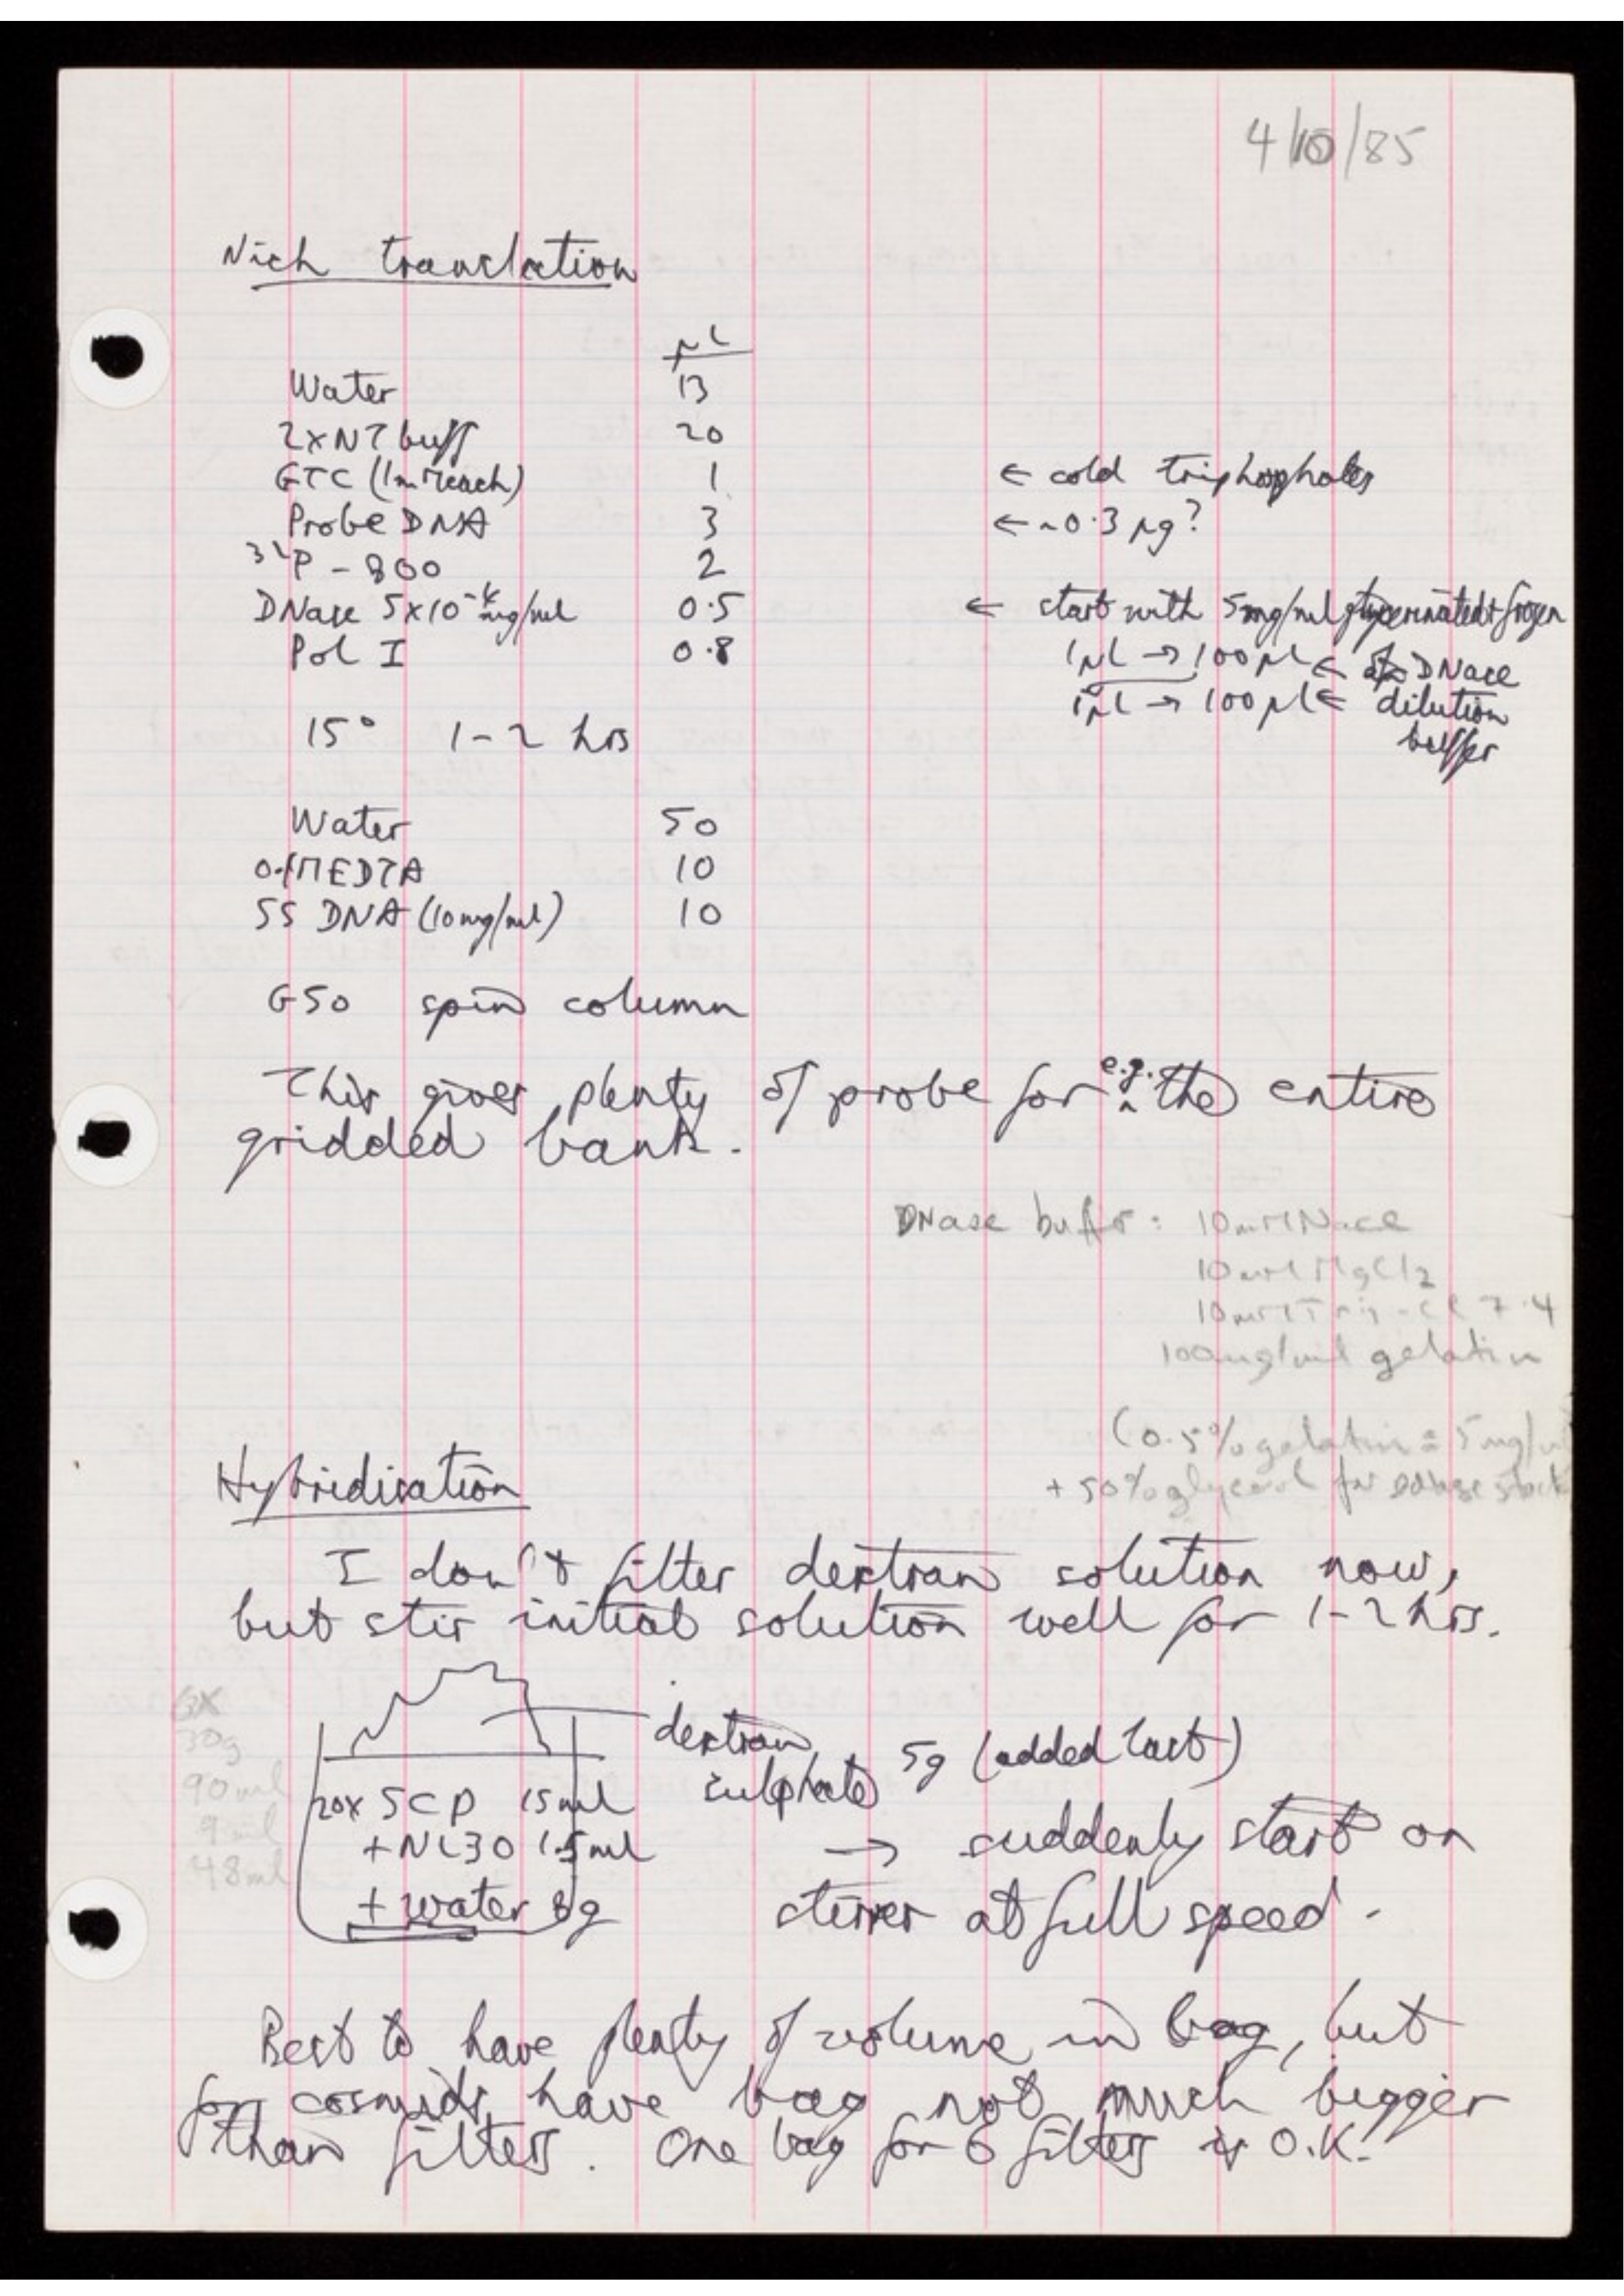 4/10/85
Nick translation
µl
Water 13
2xNT buff 20
GTC (1mM each) 1 ← cold triphosphates
Probe DNA 3 ← ~0.3 µg?
32P - 800 2
DNase 5x10-4 mg/ml 0.5 ← start with 5mg/ml + frozen
Pol I 0.8 1µl → 100 µl ← DNase
1µl → 100 µl ← dilution
buffer
15° 1-2 hrs
Water 50
0.1M EDTA 10
SS DNA (10mg/ml) 10
G50 spin column
This gives plenty of probe for e.g. the entire
gridded bank.
DNase buffer: 10mM NaCl
10mM MgCl2
10mM Tris-Cl 7.4
100µg/ml gelatin
(0.5% gelatin = 5mg/ml
+ 50% glycerol for DNase stock
Hybridisation
I don't filter dextran solution now,
but stir initial solution well for 1-2 hrs.
6X
30g
90ml
9ml
48ml
dextran
sulphate 5g (added last)
20x SCP 15ml
+ NL30 1.5ml
+ water 8g
→ suddenly start on
stirrer at full speed.
Best to have plenty of volume in bag, but
for cosmids have bag not much bigger
than filters. One bag for 6 filters is O.K.